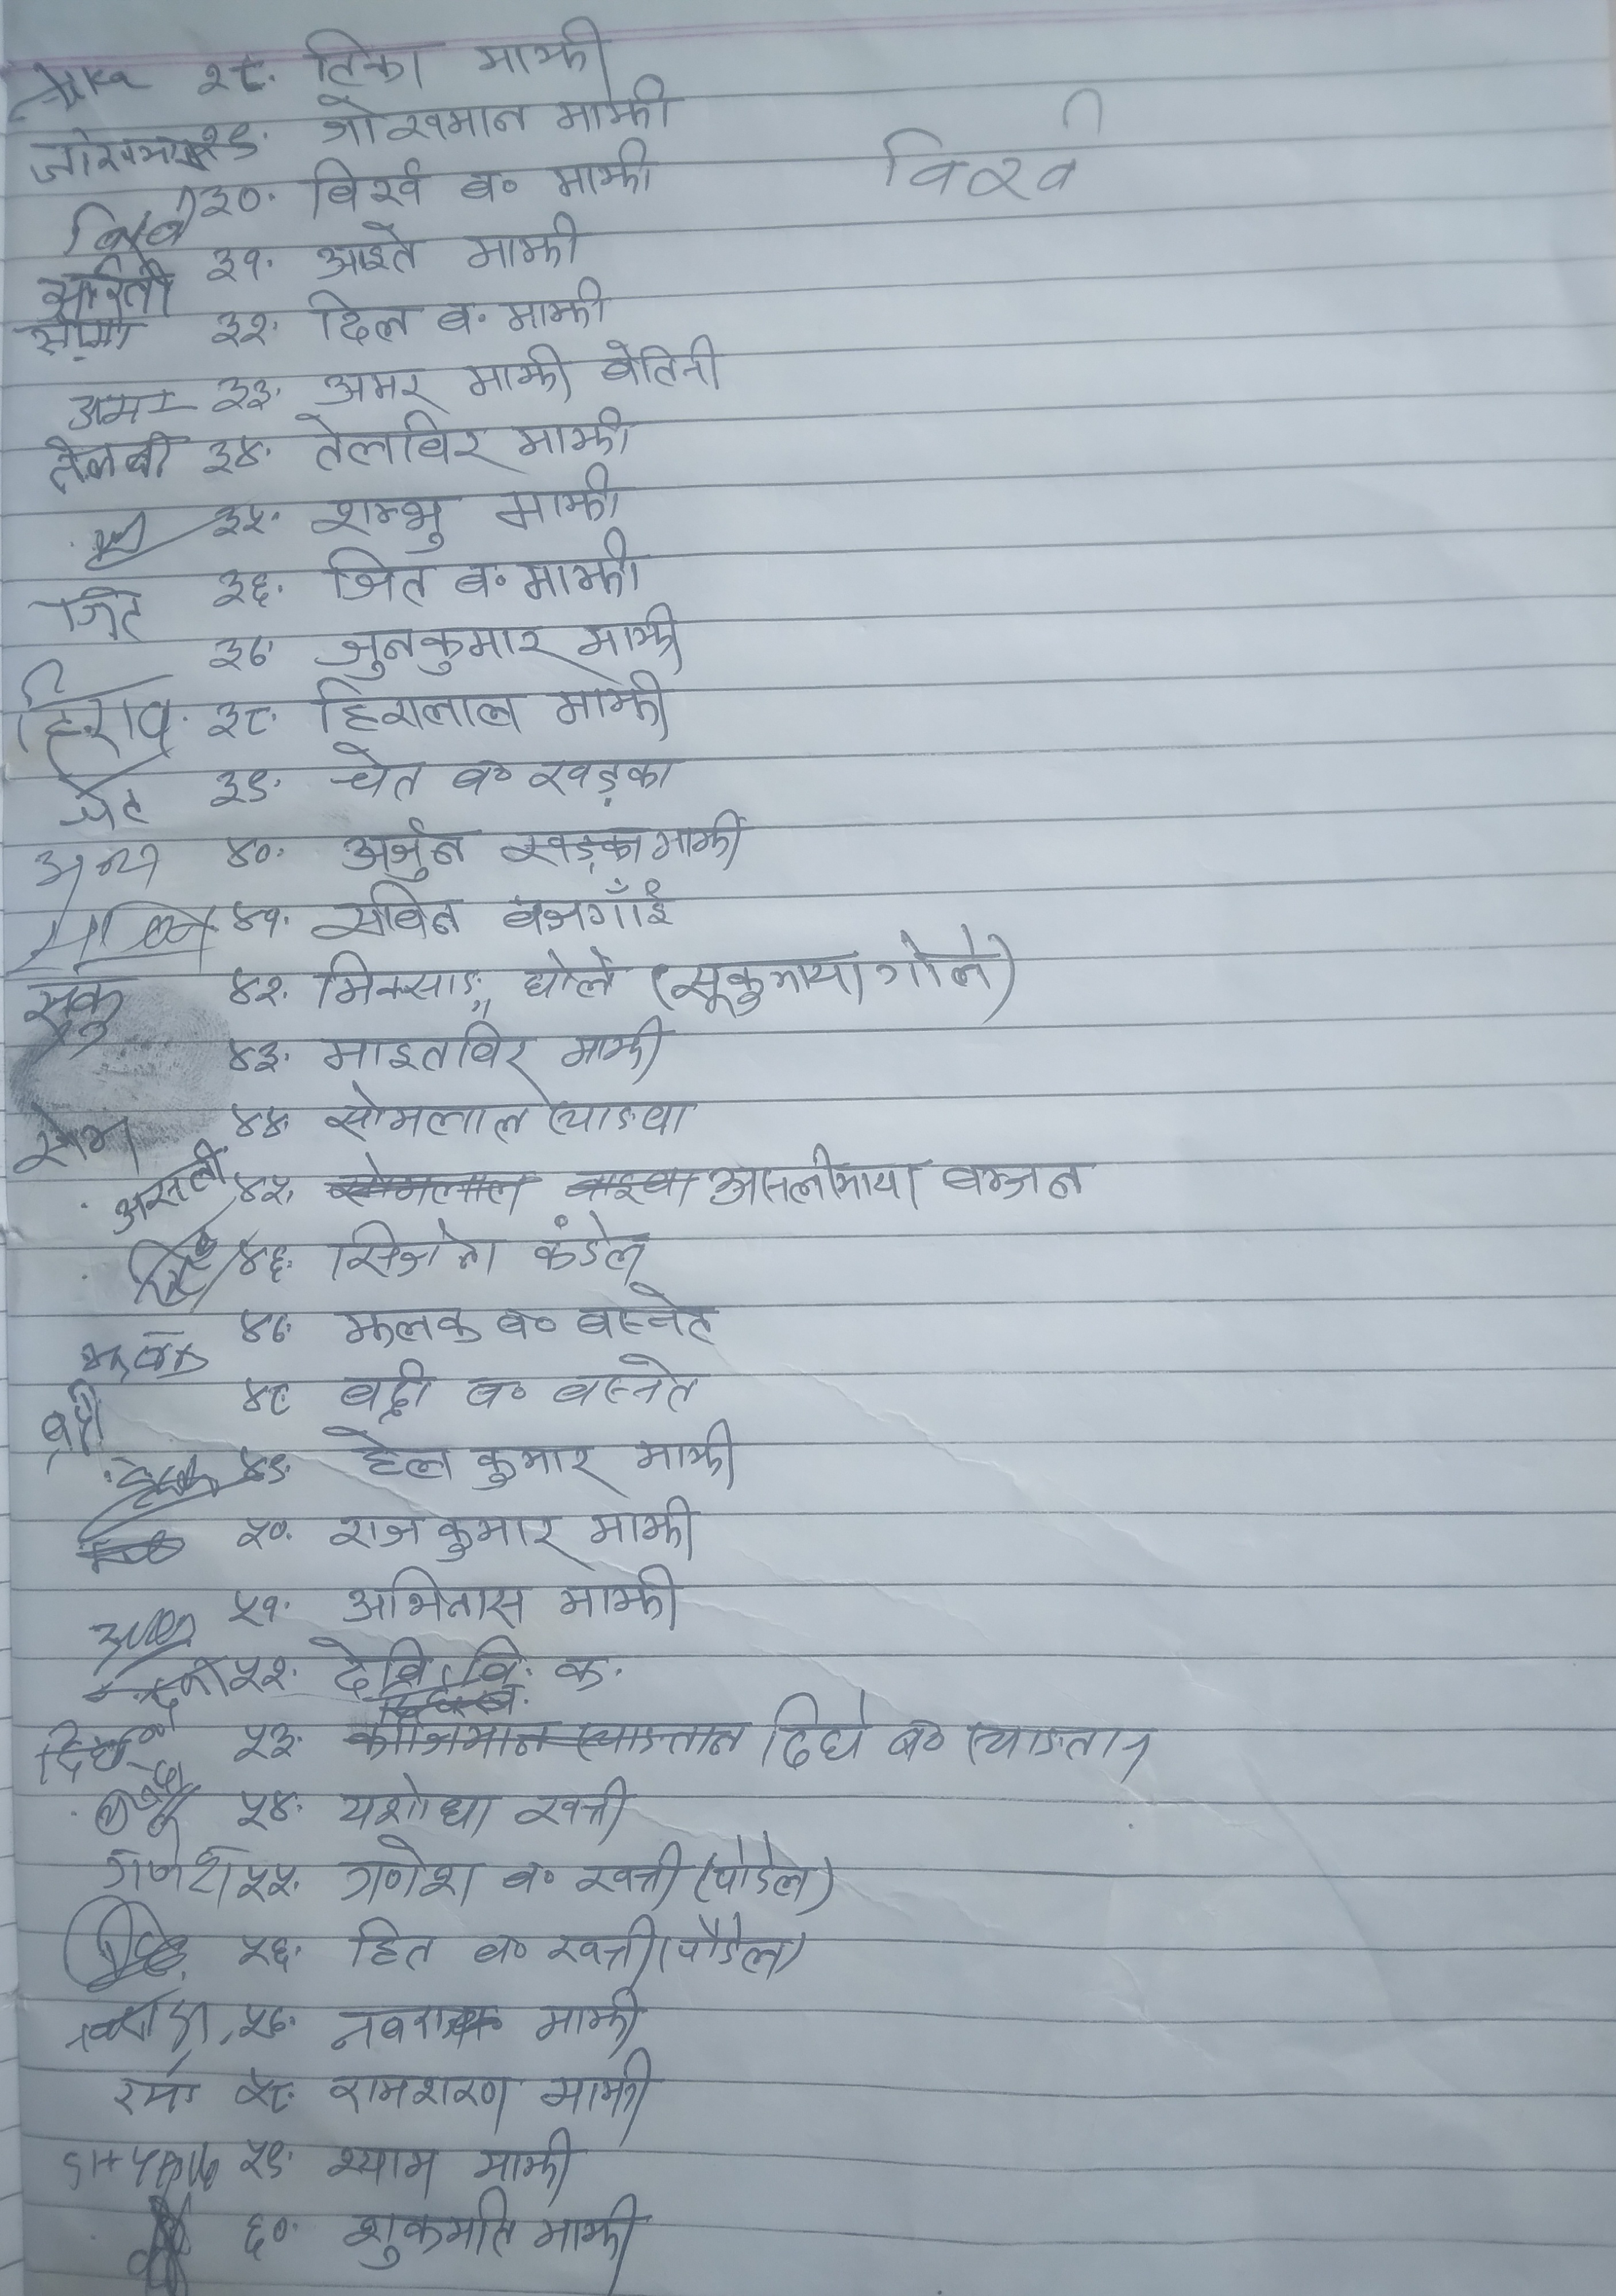 २८. टिका माझी
जोखमान २९. जोखमान माझी
विर्ख
३०. विर्ख ब० माझी
३१. आइते माझी
३२. दिल ब. माझी
अमर ३३. अमर माझी बेतिनी
तेलवी ३४. तेलविर माझी
३५. शम्भु माझी
जित ३६. जित ब० माझी
३७. जुनकुमार माझी
३८. हिरालाल माझी
चेत ३९. चेत ब० खड्का
४०. अर्जुन खड्का माझी
४१. सविन बजगाँई
सूकु ४२. मिक्साङ घोले (सूकुमाया गोले)
४३. माइतविर माझी
सोम ४४. सोमलाल त्याङवा
असली ४५. असलीमाया बम्जन
४६. सिजन कंडेल
४७. झलक ब० बस्नेत
बद्री ४८ बद्री ब० बस्नेत
४९. हेल कुमार माझी
५०. राज कुमार माझी
५१. अभिनास माझी
५२. देवि वि. क.
५३. काजिमान स्याङतान दिघे ब० स्याङतान
५४. यशोधा खत्री
गणेश ५५. गणेश ब० खत्री (पौडेल)
५६. हित ब० खत्री (पौडेल)
५७. माझी
५८. रामशरण माझी
५९. श्याम माझी
६०. शुकमति माझी